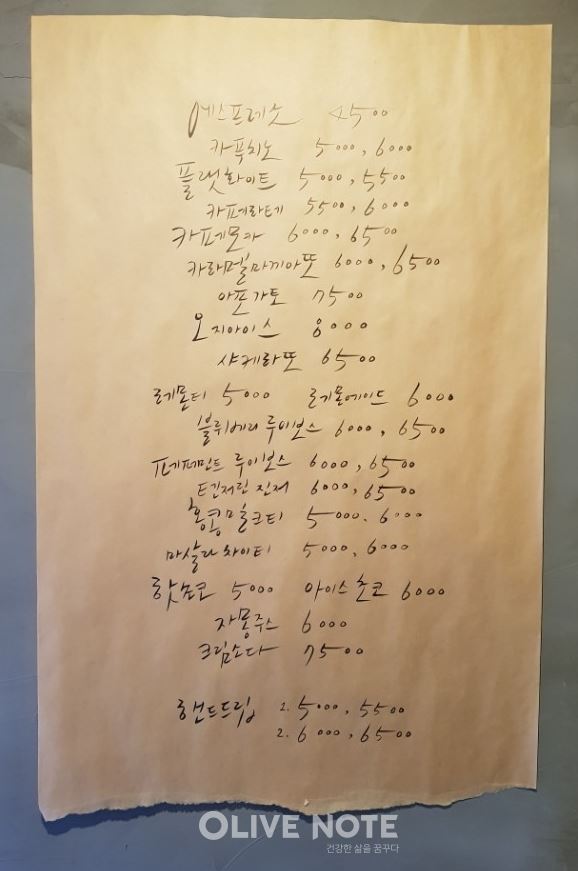 에스프레소 4500
카푸치노 5000, 6000
플랫화이트 5000, 5500
카페라테 5500, 6000
카페모카 6000, 6500
카라멜마끼아또 6000, 6500
아포가토 7500
오지아이스 8000
샤케라또 6500
레몬티 5000 레몬에이드 6000
블루베리 루이보스 6000, 6500
페퍼민트 루이보스 6000, 6500
탠저린 진저 6000, 6500
홍콩밀크티 5000. 6000
마살라 차이티 5000, 6000
핫쵸코 5000 아이스 쵸코 6000
자몽주스 6000
크림소다 7500
핸드드립 1. 5000, 5500
2. 6000, 6500
OLIVE NOTE
건강한 삶을 꿈꾸다